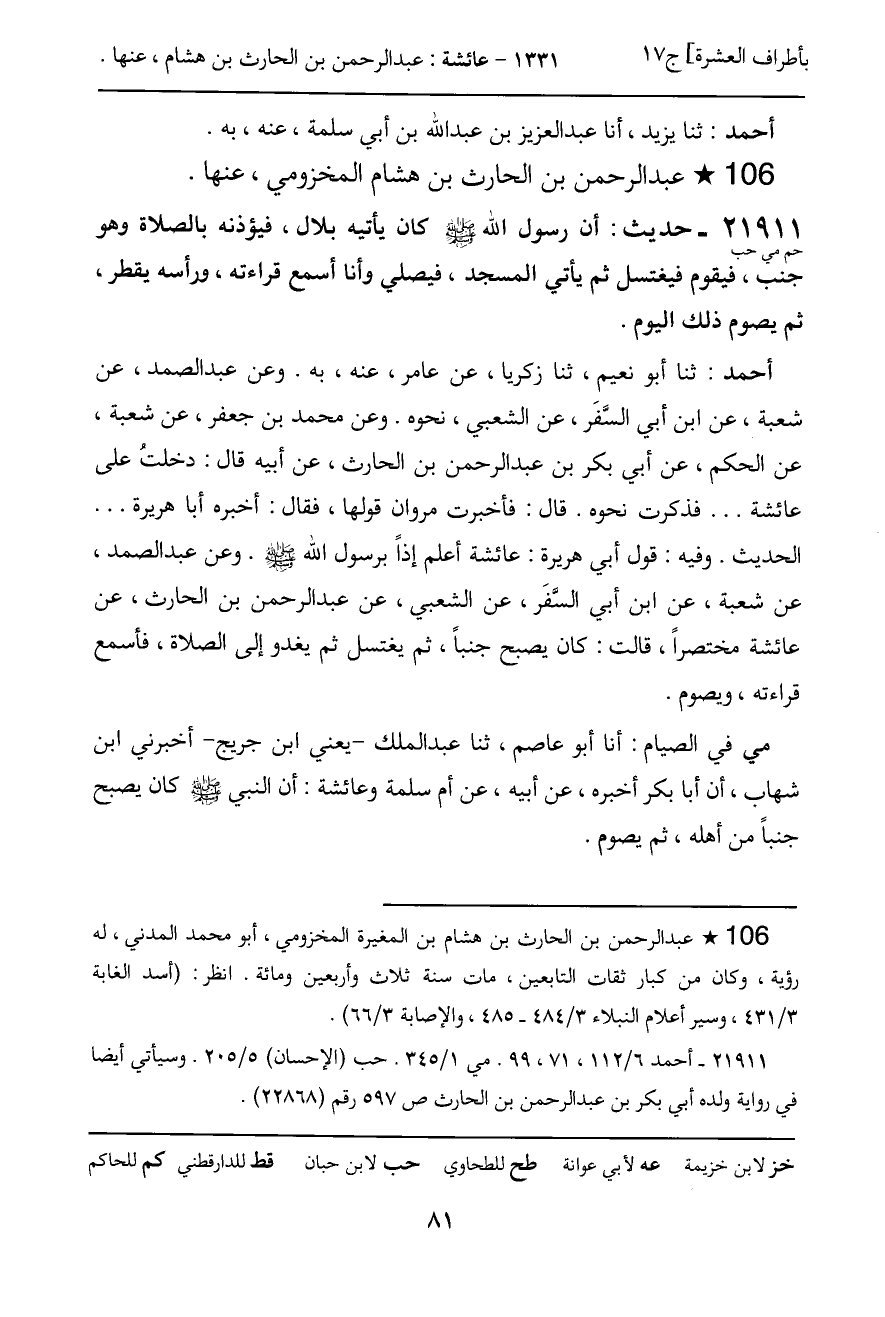 بأطراف العشرة] ج١٧ ١٣٣١ – عائشة : عبدالرحمن بن الحارث بن هشام ، عنها .
أحمد : ثنا يزيد ، أنا عبدالعزيز بن عبدالله بن أبي سلمة ، عنه ، به .
106 ★ عبدالرحمن بن الحارث بن هشام المخزومي ، عنها .
٢١٩١١ ـ حديث : أن رسول الله ﷺ كان يأتيه بلال ، فيؤذنه بالصلاة وهو
حم مي حب
جنب ، فيقوم فيغتسل ثم يأتي المسجد ، فيصلي وأنا أسمع قراءته ، ورأسه يقطر ،
ثم يصوم ذلك اليوم .
أحمد : ثنا أبو نعيم ، ثنا زكريا ، عن عامر ، عنه ، به . وعن عبدالصمد ، عن
شعبة ، عن ابن أبي السَّفَر ، عن الشعبي ، نحوه . وعن محمد بن جعفر ، عن شعبة ،
عن الحكم ، عن أبي بكر بن عبدالرحمن بن الحارث ، عن أبيه قال : دخلتُ على
عائشة ... فذكرت نحوه . قال : فأخبرت مروان قولها ، فقال : أخبره أبا هريرة ...
الحديث . وفيه : قول أبي هريرة : عائشة أعلم إذاً برسول الله ﷺ . وعن عبدالصمد ،
عن شعبة ، عن ابن أبي السَّفَر ، عن الشعبي ، عن عبدالرحمن بن الحارث ، عن
عائشة مختصراً ، قالت : كان يصبح جنباً ، ثم يغتسل ثم يغدو إلى الصلاة ، فأسمع
قراءته ، ويصوم .
مي في الصيام : أنا أبو عاصم ، ثنا عبدالملك –يعني ابن جريج– أخبرني ابن
شهاب ، أن أبا بكر أخبره ، عن أبيه ، عن أم سلمة وعائشة : أن النبي ﷺ كان يصبح
جنباً من أهله ، ثم يصوم .
106 ★ عبدالرحمن بن الحارث بن هشام بن المغيرة المخزومي ، أبو محمد المدني ، له
رؤية ، وكان من كبار ثقات التابعين ، مات سنة ثلاث وأربعين ومائة . انظر : (أسد الغابة
٤٣١/٣ ، وسير أعلام النبلاء ٤٨٤/٣ ـ ٤٨٥ ، والإصابة ٦٦/٣) .
٢١٩١١ ـ أحمد ١١٢/٦ ، ٧١ ، ٩٩ . مي ٣٤٥/١ . حب (الإحسان) ٢٠٥/٥ . وسيأتي أيضا
في رواية ولده أبي بكر بن عبدالرحمن بن الحارث ص ٥٩٧ رقم (٢٢٨٦٨) .
خز لابن خزيمة عه لأبي عوانة طح للطحاوي حب لابن حبان قط للدارقطني كم للحاكم
٨١